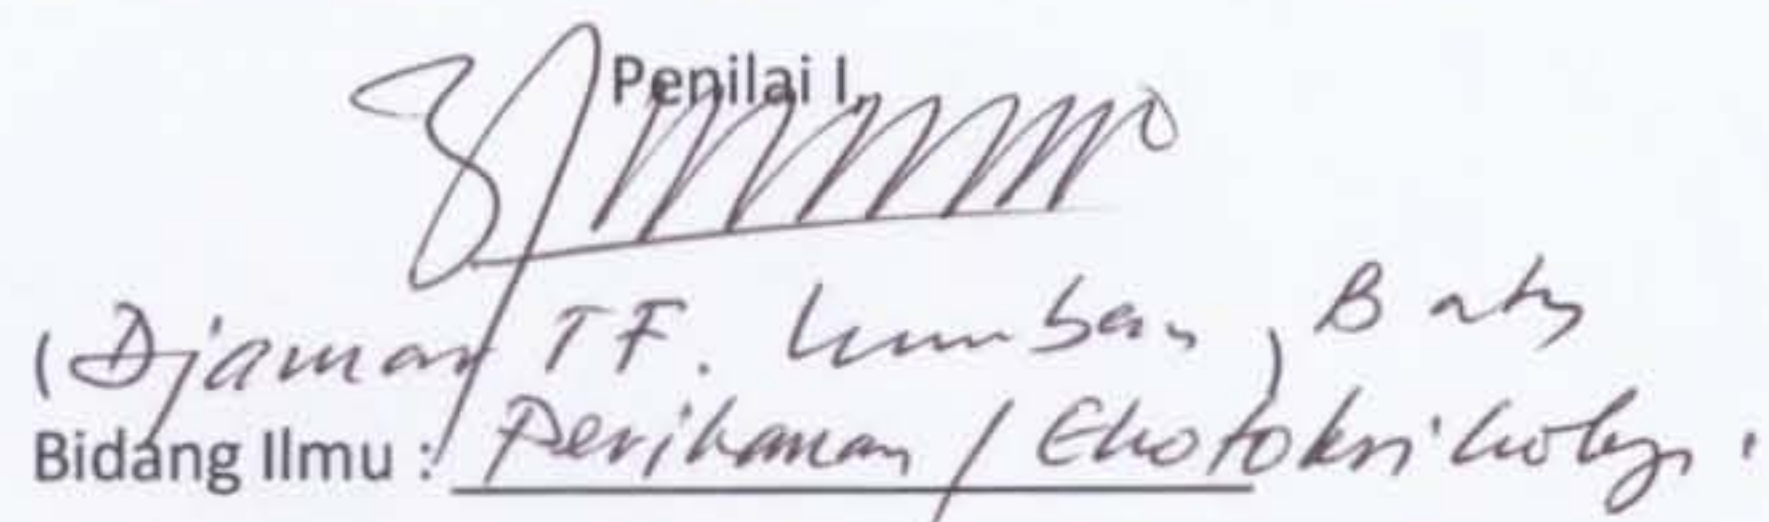 Penilai I,
(Djamar TF. Lumban Batu)
Bidang Ilmu : Perikanan / Ekotoksikologi.